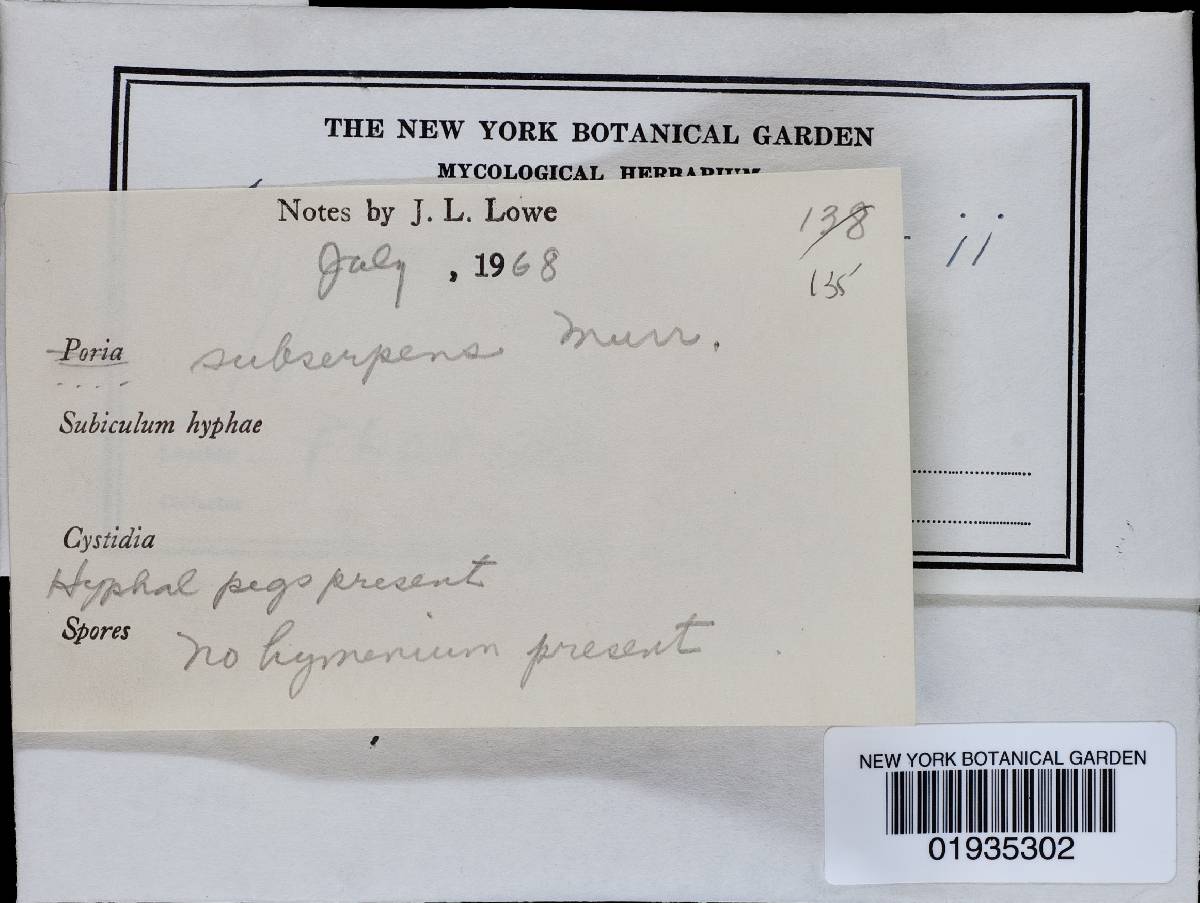 THE NEW YORK BOTANICAL GARDEN
MYCOLOGICAL HERBARIUM
Notes by J. L. Lowe
138
July , 1968
135
ii
Poria subserpens Murr.
Subiculum hyphae
Cystidia
Hyphal pegs present
Spores No hymenium present
NEW YORK BOTANICAL GARDEN
01935302